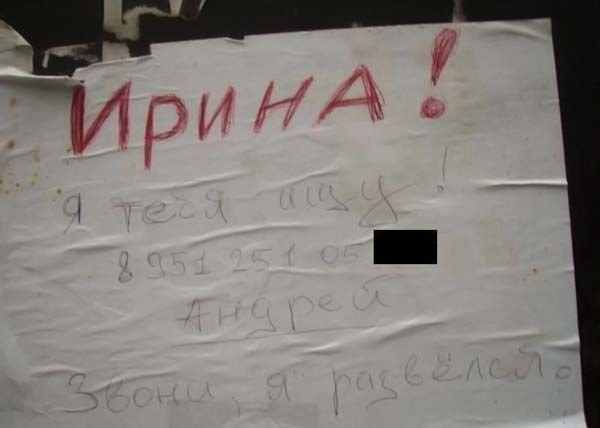 ИРИНА!
Я тебя ищу!
8 951 251 05
Андрей
Звони, я развёлся.